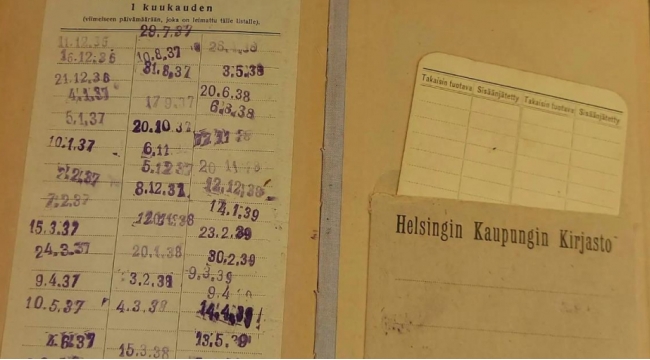 1 kuukauden
(viimeiseen päivämäärään, joka on leimattu tälle listalle).
29.7.37
11.12.36
16.12.36
21.12.38
4.1.37
5.1.37
10.1.37
7.2.37
7.2.37
15.3.37
24.3.37
9.4.37
10.5.37
4.6.37
10.8.37
31.8.37
20.10.37
6.11
5.12.37
8.12.37
20.1.38
3.2.38
4.3.38
15.3.38
3.5.38
20.6.38
6.8.38
12.12.38
14.1.39
23.2.39
30.2.39
9.3.39
9.4
14.4.39
13.5.39
Takaisin tuotava Sisäänjätetty Takaisin tuotava Sisäänjätetty
Helsingin Kaupungin Kirjasto